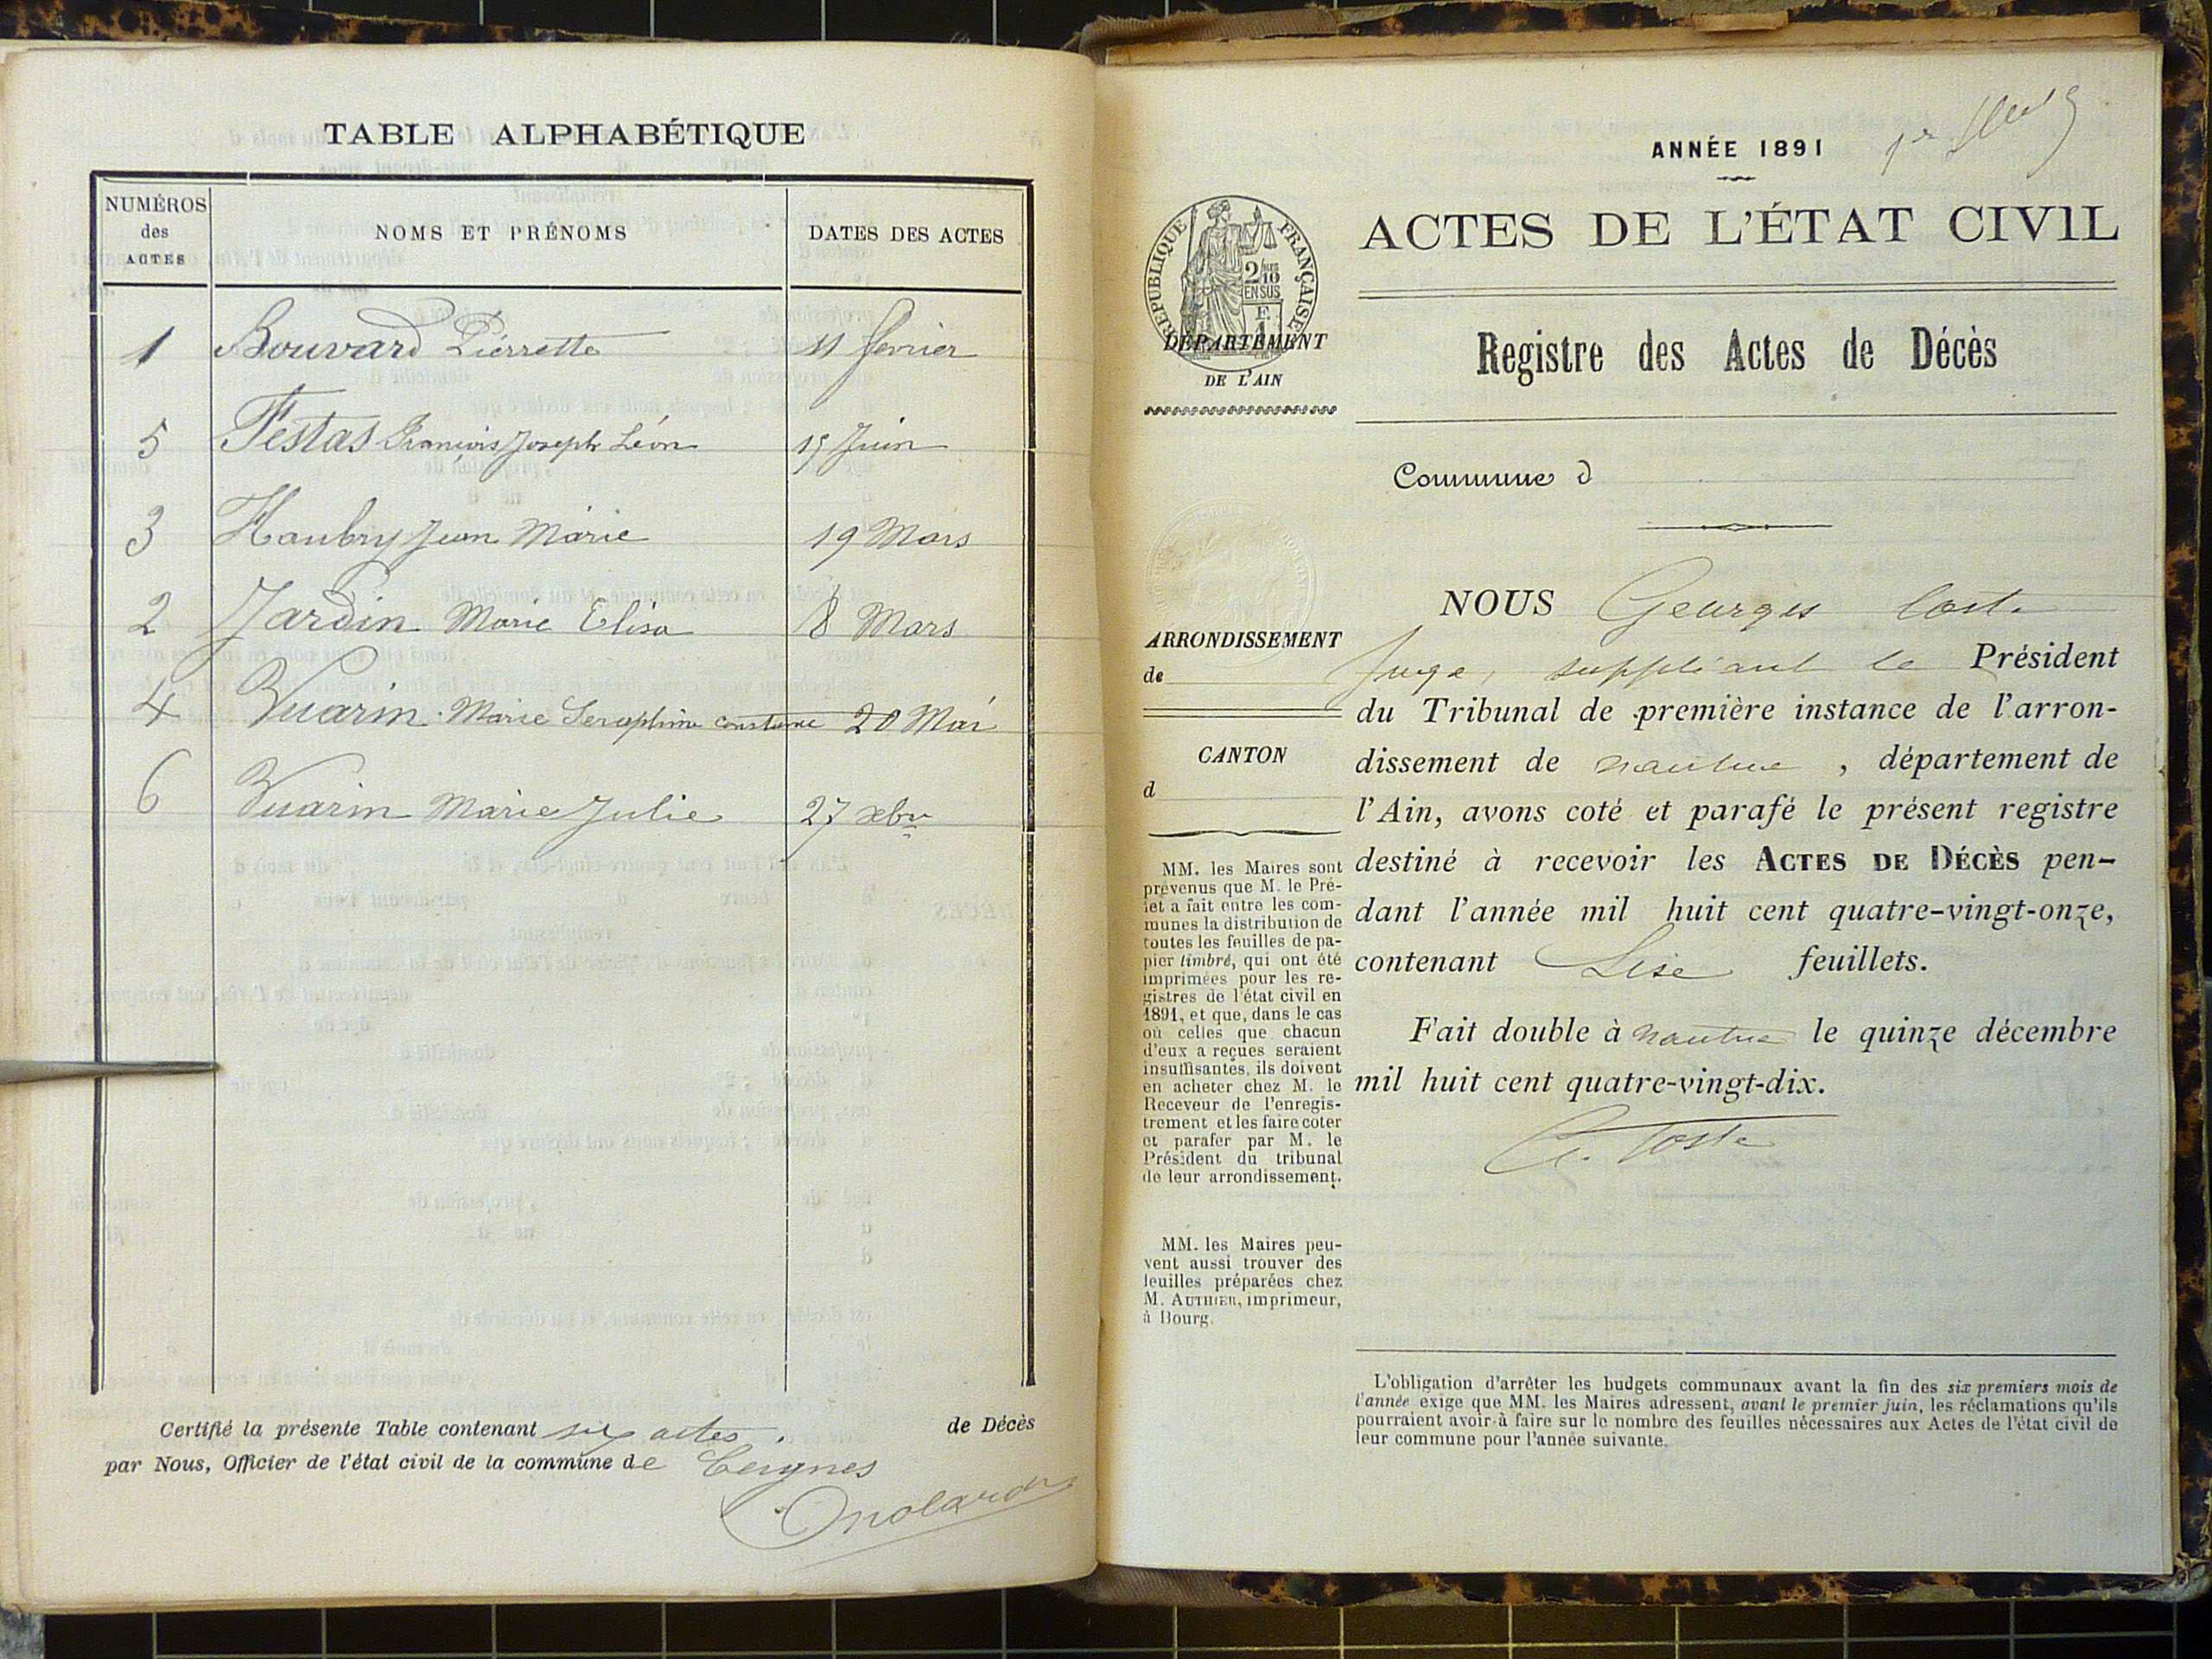 TABLE ALPHABÉTIQUE
NUMÉROS
des
ACTES
NOMS ET PRÉNOMS
DATES DES ACTES
1 Bouvard Pierrette 11 fevrier
5 Festas François Joseph Léon 15 Juin
3 Haubry Jean Marie 19 Mars
2 Jardin Marie Elisa 8 Mars
4 Vuarin Marie Seraphine constance 20 Mai
6 Vuarin Marie Julie 27 xbre
Certifié la présente Table contenant six actes. de Décès
par Nous, Officier de l'état civil de la commune de Ceignes
ANNÉE 1891
ACTES DE L'ÉTAT CIVIL
RÉPUBLIQUE FRANÇAISE
2/10
EN SUS
DÉPARTEMENT
DE L'AIN
Registre des Actes de Décès
Commune d
NOUS Georges Coste
Juge, suppléant le Président
du Tribunal de première instance de l'arron-
dissement de nantua, département de
l'Ain, avons coté et parafé le présent registre
destiné à recevoir les ACTES DE DÉCÈS pen-
dant l'année mil huit cent quatre-vingt-onze,
contenant feuillets.
Fait double à nantua le quinze décembre
mil huit cent quatre-vingt-dix.
G. Coste
ARRONDISSEMENT
de
CANTON
d
MM. les Maires sont
prévenus que M. le Pré-
fet a fait entre les com-
munes la distribution de
toutes les feuilles de pa-
pier timbré, qui ont été
imprimées pour les re-
gistres de l'état civil en
1891, et que, dans le cas
où celles que chacun
d'eux a reçues seraient
insuffisantes, ils doivent
en acheter chez M. le
Receveur de l'enregis-
trement et les faire coter
et parafer par M. le
Président du tribunal
de leur arrondissement.
MM. les Maires peu-
vent aussi trouver des
feuilles préparées chez
M. AUTHIER, imprimeur,
à Bourg.
L'obligation d'arrêter les budgets communaux avant la fin des six premiers mois de
l'année exige que MM. les Maires adressent, avant le premier juin, les réclamations qu'ils
pourraient avoir à faire sur le nombre des feuilles nécessaires aux Actes de l'état civil de
leur commune pour l'année suivante.